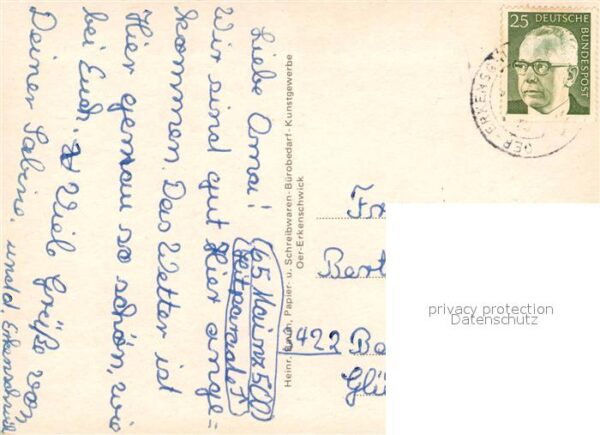 Liebe Omai!
Wir sind gut hier ange=
kommen. Das Wetter ist
hier genau so schön, wie
bei Euch. Viele Grüße von
Deiner Sabine.
und d.
65 Mainz 500
Heinr. Papier- u. Schreibwaren-Bürobedarf-Kunstgewerbe
Oer-Erkenschwick
25 DEUTSCHE
BUNDESPOST
OER-ERKENSCHWICK
Fr
Bert
422
Glü
privacy protection
Datenschutz